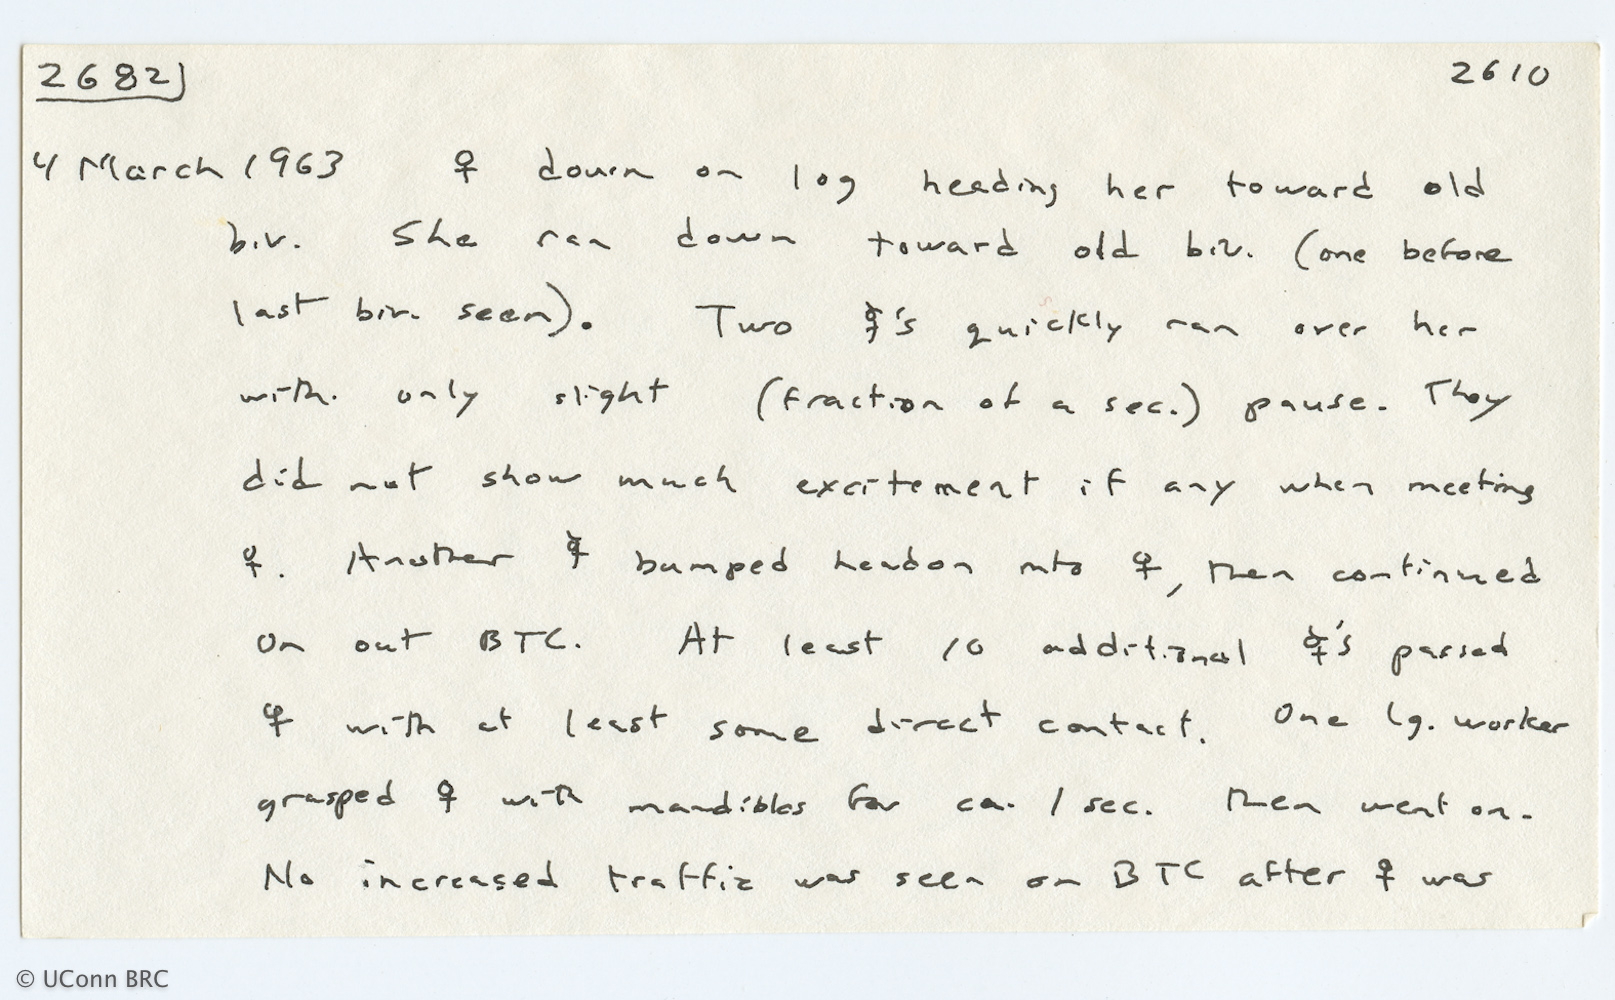 2682 2610
4 March 1963 ♀ down on log heading her toward old
biv. She ran down toward old biv. (one before
last biv. seen). Two ☿'s quickly ran over her
with only slight (fraction of a sec.) pause. They
did not show much excitement if any when meeting
♀. Another ☿ bumped headon into ♀, then continued
on out BTC. At least 10 additional ☿'s passed
♀ with at least some direct contact. One lg. worker
grasped ♀ with mandibles for ca. 1 sec. then went on.
No increased traffic was seen on BTC after ♀ was
© UConn BRC